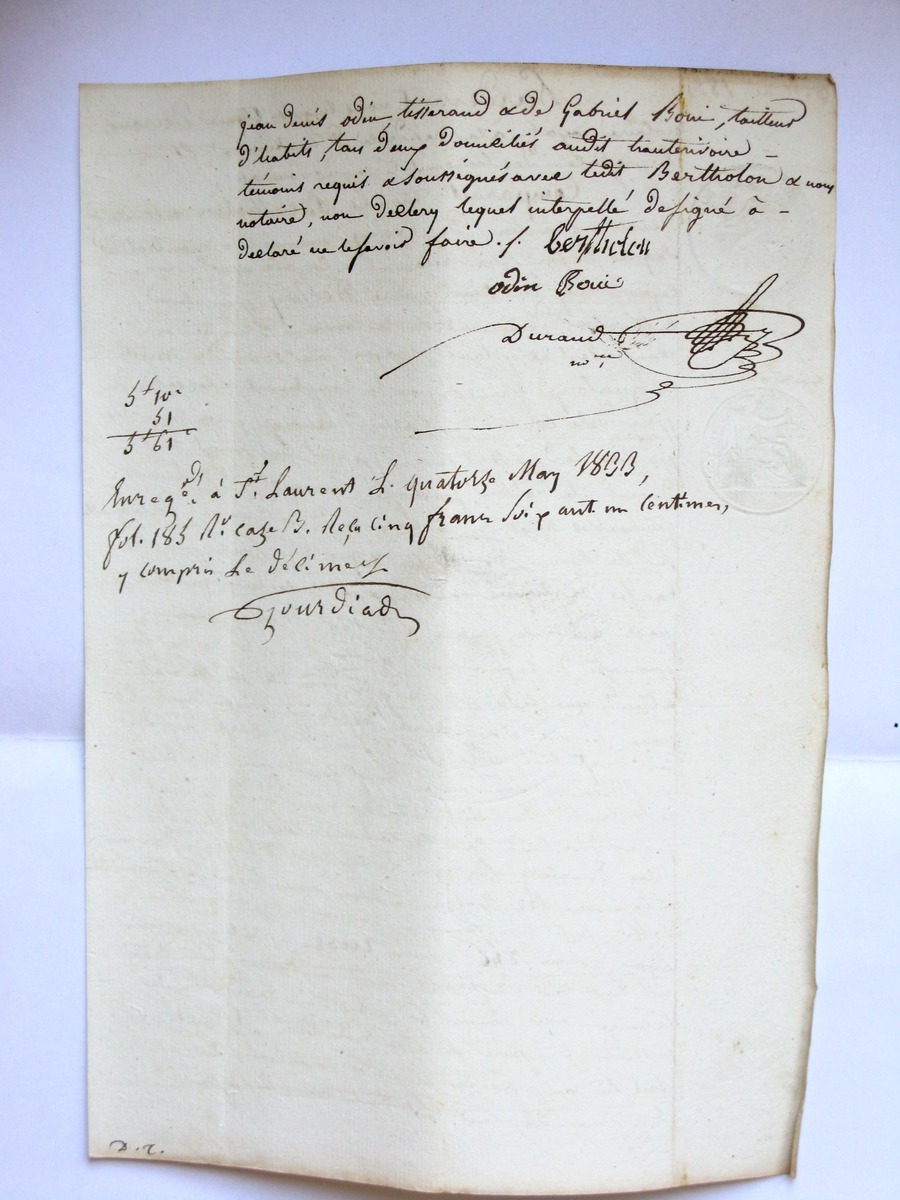 jean denis odin, tisserand & de Gabriel Boui, tailleur
d'habits, tous deux domiciliés audit hauterivoire –
témoins requis & soussignés avec ledit Bertholon & nous
notaire, non declery lequel interpellé de signé à –
declaré ne le savoir faire ./. bertholon
odin Boui
Durand
nore
5f 10c
51
5f 61c
Enregé. à St. Laurent le quatorze May 1833,
fol. 185 Ro. case B. Reçu cinq francs soixant un centimes,
y compris le décime
Bourdiad
D. r.